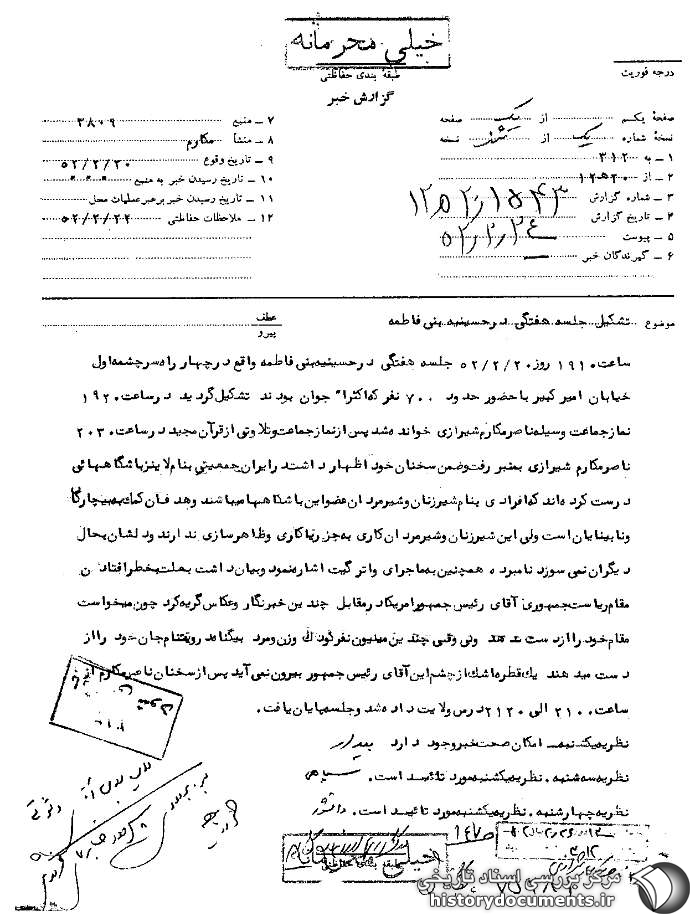 خیلی محرمانه
طبقه بندی حفاظتی
گزارش خبر
درجه فوریت
صفحهٔ یکم از یک صفحه
نسخهٔ شماره یک از نسخه
۱ ـ به ۳۱۲
۲ ـ از ۱۲ﻫ۲۰
۳ ـ شماره گزارش
۴ ـ تاریخ گزارش
۵ ـ پیوست
۶ ـ گیرندگان خبر
۷ ـ منبع ۲۸۰۹
۸ ـ منشأ مکارم
۹ ـ تاریخ وقوع ۵۲/۲/۲۰
۱۰ ـ تاریخ رسیدن خبر به منبع
۱۱ ـ تاریخ رسیدن خبر برهبر عملیات محل
۱۲ ـ ملاحظات حفاظتی ۵۲/۲/۲۲
موضوع تشکیل جلسه هفتگی در حسینیه بنی فاطمه
عطف
پیرو
ساعت ۱۹۱۰ روز ۵۲/۲/۲۰ جلسه هفتگی در حسینیه بنی فاطمه واقع در چهار راه سرچشمه اول
خیابان امیر کبیر با حضور حدود ۷۰۰ نفر که اکثراً جوان بودند تشکیل گردید در ساعت ۱۹۲۰
نماز جماعت وسیله ناصر مکارم شیرازی خوانده شد پس از نماز جماعت و تلاوتی از قرآن مجید در ساعت ۲۰۳۰
ناصر مکارم شیرازی بمنبر رفت و ضمن سخنان خود اظهار داشت در ایران جمعیتی بنام لاینز باشگاههائی
درست کرده اند که افرادی بنام شیر زنان و شیر مردان عضو این باشگاهها میباشند و هدفشان کمک به بیچارگان
و نابینایان است ولی این شیر زنان و شیر مردان کاری به جز ریاکاری و ظاهر سازی ندارند و دلشان بحال
دیگران نمی سوزد نامبرده همچنین به ماجرای واترگیت اشاره نمود و بیان داشت بعلت بخطر افتادن
مقام ریاست جمهوری آقای رئیس جمهور امریکا در مقابل چندین خبرنگار و عکاس گریه کرد چون میخواست
مقام خود را از دست بدهد ولی وقتی چندین میلیون نفر کودک و زن و مرد بیگناه در ویتنام جان خود را از
دست میدهند یک قطره اشک از چشم این آقای رئیس جمهور بیرون نمی آید پس از سخنان ناصر مکارم از
ساعت ۲۱۰۰ الی ۲۱۲۰ درس ولایت داده شد و جلسه پایان یافت.
نظریه یکشنبه. امکان صحت خبر وجود دارد بیدار
نظریه سه شنبه. نظریه یکشنبه مورد تائید است.
نظریه چهارشنبه. نظریه یکشنبه مورد تائید است.
خیلی محرمانه
طبقه بندی حفاظتی
مرکز بررسی اسناد تاریخی
historydocuments.ir